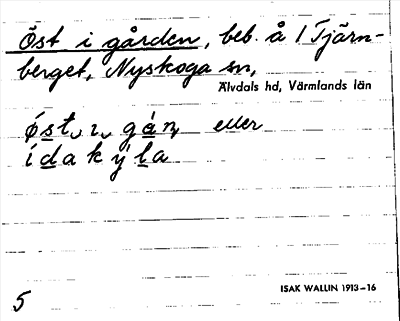 Öst i gården, beb. å 1 Tjärn-
berget, Nyskoga sn,
Älvdals hd, Värmlands län
ǿst ı gán eller
ídakýla
ISAK WALLIN 1913–16
5